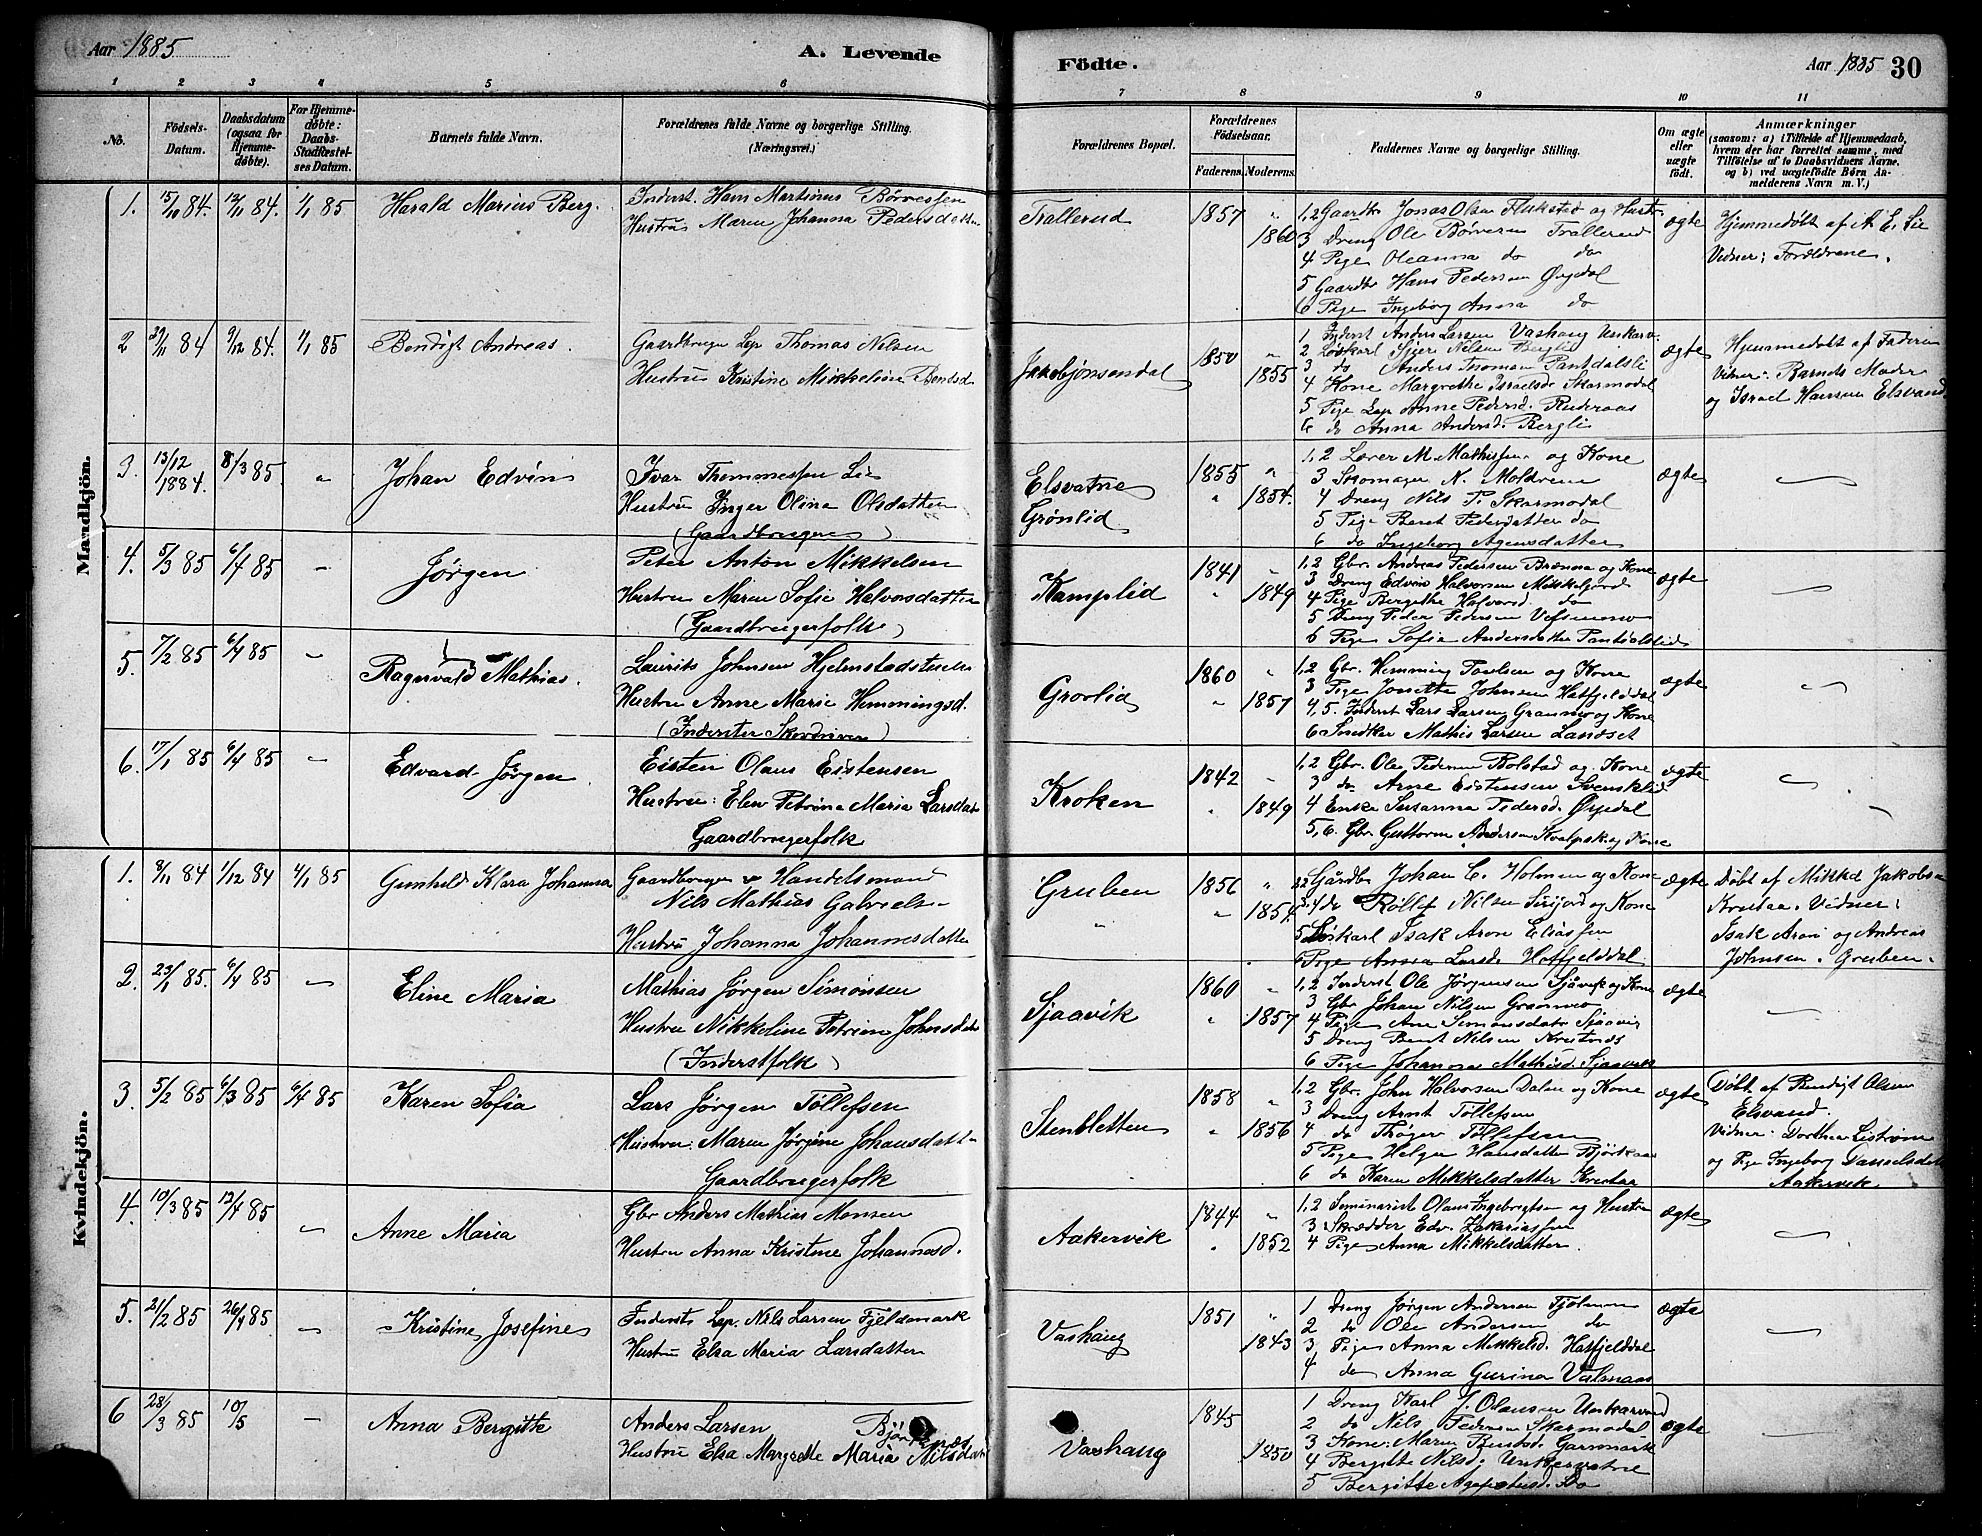 Aar 1885
A. Levende
Födte.
Aar 1885
30
1 2 3 4 5 6 7 8 9 10 11
No.
Födsels-
Datum.
Daabsdatum
(ogsaa for
Hjemme-
döbte).
For Hjemme-
döbte:
Daabs-
Stadfæstel-
ses Datum.
Barnets fulde Navn.
Forældrenes fulde Navne og borgerlige Stilling.
(Næringsvei.)
Forældrenes Bopæl.
Forældrenes
Födselsaar.
Faderens. Moderens.
Faddernes Navne og borgerlige Stilling.
Om ægte
eller
uægte
födt.
Anmærkninger
(saasom: a) i Tilfælde af Hjemmedaab,
hvem der har forrettet samme, med
Tilföielse af to Daabsvidners Navne.
og b) ved uægtefödte Börn An-
melderens Navn m. V.)
Mandkjön.
1. 15/10 84. 12/11 84. 1/1 85
Harald Marius Berg.
Inderst. Hans Martinus Börresen
Hustru Maren Johanna Pedersdatter
Trallerud
1857 "
1860
1,2 Gaardbr Jonas Olsen Flukstad og Hustru
3 Dreng Ole Börresen Trallerud
4 Pige Oleanna do do
5 Gaardbr Hans Pedersen Öxedal
6 Pige Ingeborg Anna do
ægte
Hjemmedöbt af A. E. Lie
Vidner: Forældrene.
2 29/11 84 9/12 84. 1/1 85
Bendigt Andreas.
Gaardbruger Lap Thomas Nilsen
Hustru Kristine Mikkeline Bendsd.
Jakobjönsendal
1850 "
1855
1 Inderst Anders Larsen Vashaug Unkarv.
2 Löskarl Sjer Nilsen Bergli
3 do Anders Thomsen Pantdalsli
4 Kone Margrethe Israelsd. Skarmodal
5 Pige Lap Anne Pedersd. Ruderaas
6 do Anna Andersd. Bergli
ægte
Hjemmedöbt af Faderen
Vidner: Barnets Moder
og Israel Hansen Elsvand.
3. 13/12 1884. 8/3 85. "
Johan Edvin
Ivar Thommessen Li
Hustru Inger Olina Olsdatter
(Gaardbruger)
Elsvatne
Grönlid
1855 "
" 1854.
1,2 Lærer M. Mathissen og Kone
3 Skomager N. Moldrem
4 Dreng Nils P. Skarmodal
5 Pige Beret Pedersdatter do
6 do Ingeborg Agensdatter
ægte
4. 5/3 85 6/4 85 -
Jörgen
Peter Anton Mikkelsen
Hustru Maren Sofie Halvorsdatter
(Gaardbrugerfolk)
Kamplid
1841 "
" 1849
1,2 Gbr. Andreas Pedersen Brænna og Kone
3 Dreng Edvin Halvorsen Mikkeljord
4 Pige Bergithe Halvorsd. do
5 Dreng Peder Pedersen Vefsenmo
6 Pige Sofie Andersdatter Pantdalslid
ægte
5. 7/2 85 6/4 85 -
Ragnvald Mathias.
Laurits Johnsen Hjelmstadstuen
Hustru Anne Marie Hemmingsd.
(Inderster Skovdriver)
Grovlid
1860 "
" 1857
1,2 Gbr. Hemming Paulsen og Kone
3 Pige Jonette Johnsen Hatfjelddal
4,5. Inderst Lars Larsen Granmo og Kone
6 Snedker Mathis Larsen Landset
ægte
6. 17/1 85 6/4 85 -
Edvard Jörgen
Eisten Olaus Eistensen
Hustru: Elen Petrine Maria Larsdatter
Gaardbrugerfolk
Kroken
1842 "
" 1849
1,2 Gbr. Ole Pedersen Rolstad og Kone
3 do Arne Eistensen Svensklid
4 Enke Susanna Pedersd. Öxedal
5,6. Gbr. Guttorm Andersen Kvalpsk. og Kone
ægte
Kvindekjön.
1. 8/11 84 1/12 84 4/1 85
Gunhild Klara Johanna
Gaardbruger & Handelsmand
Nils Mathias Gabriels-
Hustru Johanna Johannesdatter
Gruben
1856 "
" 1854.
1,2 Gårdbr Johan C. Holmen og Kone
3,4 do Rollef Nilsen Sirijord og Kone
5 Löskarl Isak Aron Eliassen
6 Pige Anna Larsd. Hatfjelddal.
ægte
Döbt af Mikkel Jakobsen
Krutaa. Vidner:
Isak Aron og Andreas
Johnsen. Gruben.
2. 23/1 85. 6/4 85 -
Eline Maria
Mathias Jörgen Simonsen
Hustru Nikkeline Petrine Johnsdatter
(Inderstfolk)
Sjaavik
1860 "
" 1857
1,2 Inderst Ole Jörgensen Sjåvik og Kone
3 Gbr Johan Nilsen Granmo
4 Pige Ane Simonsdatr Sjaavig
5 Dreng Bernt Nilsen Kvestnes
6 Pige Johanna Mathisd. Sjaavik
ægte
3. 5/2 85 6/3 85 6/4 85
Karen Sofia
Lars Jörgen Töllefsen
Hustru: Maren Jörgine Johansdatter
Gaardbrugerfolk
Stenbletten
1858 "
" 1856
1,2 Gbr. John Halvorsen Dalen og Kone
3 Dreng Arnt Töllefsen
4 do Thöger Töllefsen
5 Pige Helga Hansdatter Björkaas
6 do Karen Mikkelsdatter Krutaa
ægte
Döbt af Bendigt Olsen
Elsvand.
Vidner: Dorthea Liström
og Pige Ingeborg Danielsdatter
Aakervik
4. 10/3 85 12/4 85 -
Anne Maria
Gbr Anders Mathias Monsen
Hustru Anna Kristine Johannesd.
Aakervik
1844 "
" 1852
1,2 Seminarist Olaus Ingebrigtsen og Hustru
3 Skrædder Edv. Zakariassen
4 Pige Anna Mikkelsdatter.
ægte
5. 21/2 85 26/4 85 -
Kristine Josefine
Inderst Lap. Nils Larsen Fjeldmark
Hustru Elsa Maria Larsdatter
Vashaug
1851 "
1843
1 Dreng Jörgen Andersen Fjölmoen
2 do Ole Andersen do
3 Pige Anna Mikkelsd. Hatfjelddal
4 do Anna Gurina Valmaas
ægte
6 28/3 85 10/5 -
Anna Bergitte
Anders Larsen Björk
Hustru Elsa Margrethe Maria Nilsdatter
Vashaug
1845
1850
1 Dreng Karl J. Olausen Unkarvand
2 do Nils Pedersen Skarmodal
3 Kone: Maren Bendsd. Garmark
4 Bergitte Nilsd. Unkervatne
5 Bergitte Agatheusd. Do
ægte